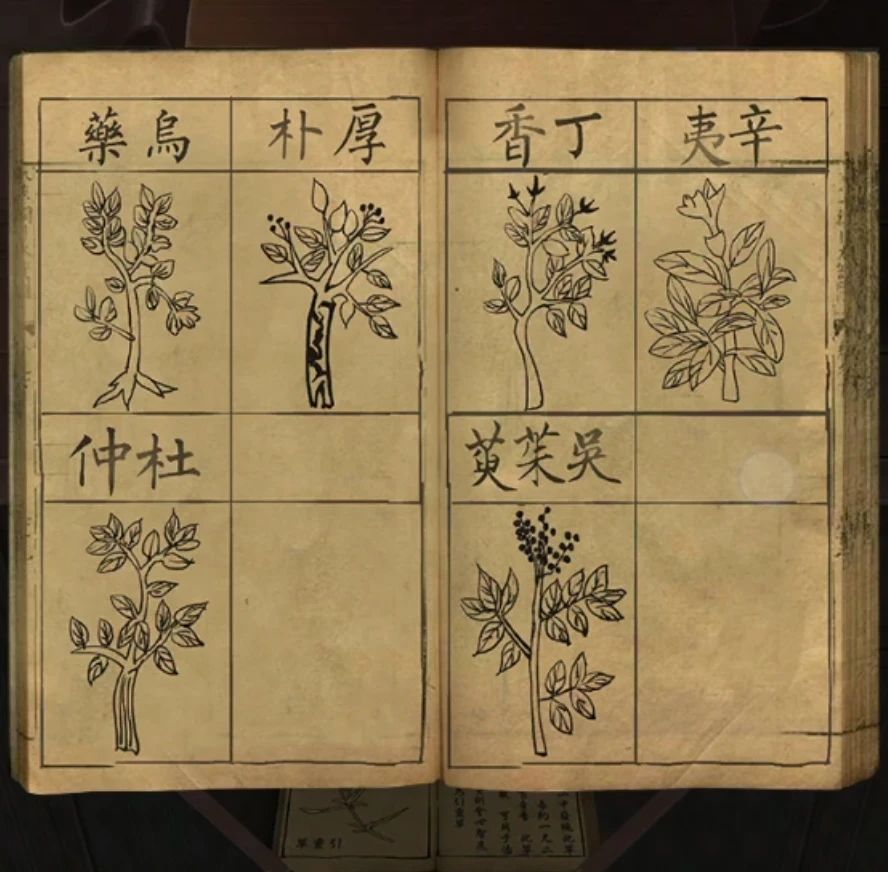 辛夷
丁香
吳茱萸
厚朴
烏藥
杜仲
引靈草